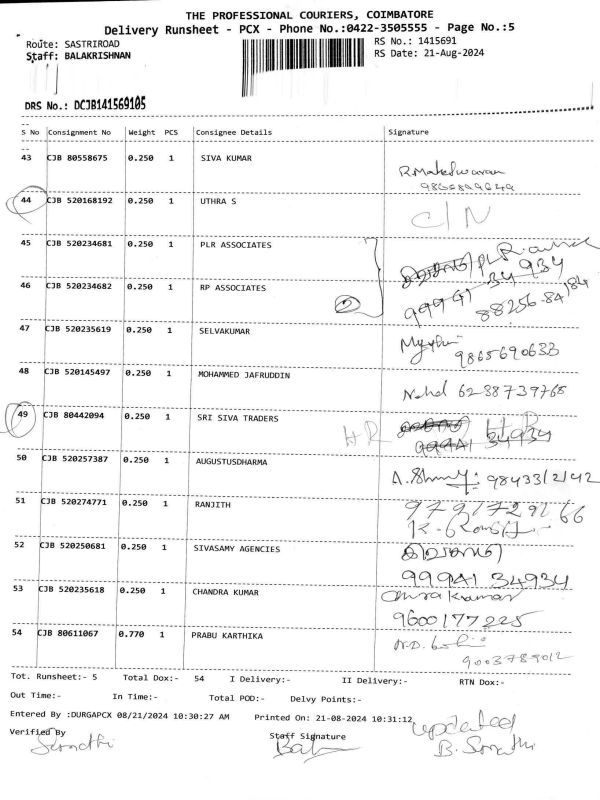 THE PROFESSIONAL COURIERS, COIMBATORE
Delivery Runsheet - PCX - Phone No.:0422-3505555 - Page No.:5
Route: SASTRIROAD
RS No.: 1415691
Staff: BALAKRISHNAN
RS Date: 21-Aug-2024
DRS No.: DCJB141569105
S No Consignment No Weight PCS Consignee Details Signature
43 CJB 80558675 0.250 1 SIVA KUMAR
R.Maheswaran
44 CJB 520168192 0.250 1 UTHRA S
C/N
45 CJB 520234681 0.250 1 PLR ASSOCIATES
46 CJB 520234682 0.250 1 RP ASSOCIATES
2
99941 34934
88256-84184
47 CJB 520235619 0.250 1 SELVAKUMAR
9865690633
48 CJB 520145497 0.250 1 MOHAMMED JAFRUDDIN
6238739768
49 CJB 80442094 0.250 1 SRI SIVA TRADERS
HR
99941 34934
50 CJB 520257387 0.250 1 AUGUSTUSDHARMA
98433/2/42
51 CJB 520274771 0.250 1 RANJITH
52 CJB 520250681 0.250 1 SIVASAMY AGENCIES
99941 34934
53 CJB 520235618 0.250 1 CHANDRA KUMAR
9600177225
54 CJB 80611067 0.770 1 PRABU KARTHIKA
9003789012
Tot. Runsheet:- 5 Total Dox:- 54 I Delivery:- II Delivery:- RTN Dox:-
Out Time:- In Time:- Total POD:- Delvy Points:-
Entered By :DURGAPCX 08/21/2024 10:30:27 AM Printed On: 21-08-2024 10:31:12
updated
Verified By Staff Signature